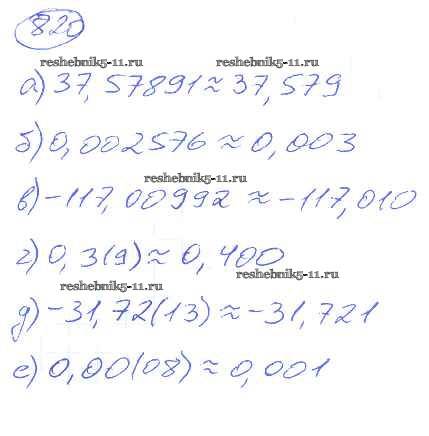 820
reshebnik5-11.ru reshebnik5-11.ru
а) 37,57891 ≈ 37,579
б) 0,002576 ≈ 0,003
reshebnik5-11.ru
в) -117,00992 ≈ -117,010
г) 0,3(9) ≈ 0,400
reshebnik5-11.ru
reshebnik5-11.ru
д) -31,72(13) ≈ -31,721
е) 0,00(08) ≈ 0,001